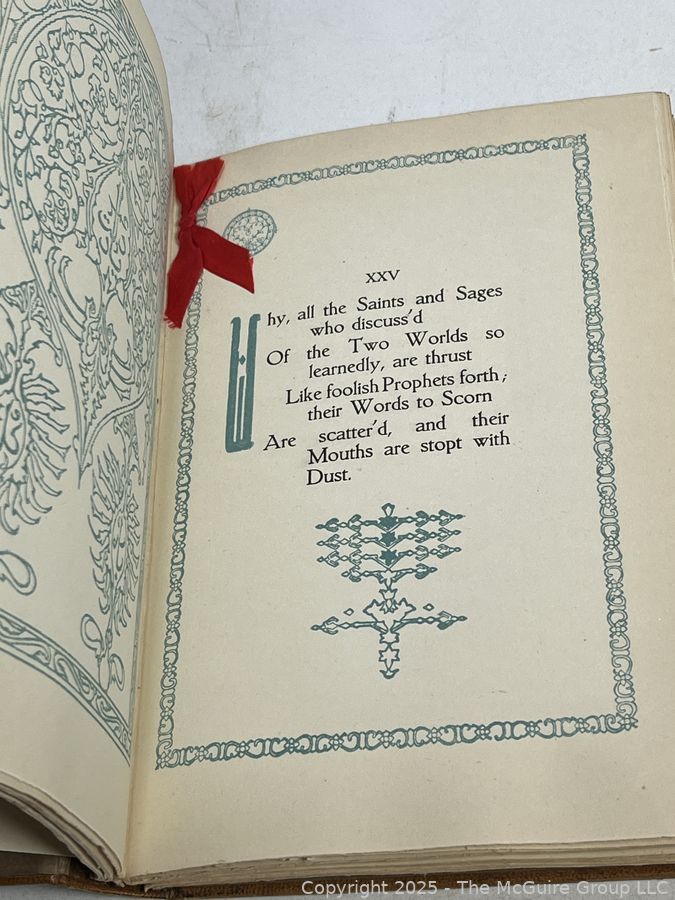 XXV
Why, all the Saints and Sages
who discuss'd
Of the Two Worlds so
learnedly, are thrust
Like foolish Prophets forth;
their Words to Scorn
Are scatter'd, and their
Mouths are stopt with
Dust.
Copyright 2025 - The McGuire Group LLC